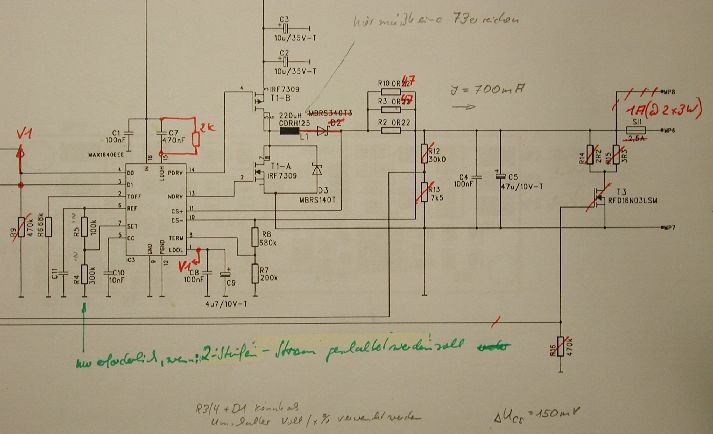 C3
10u/35V-T
C2
10u/35V-T
IRF7309
T1-B
hier müßte eine 7Z reichen
R10 0R22 47
R3 0R22 47
R2 0R22
J = 700mA
MP8
1A (@ 2x3W)
Si1
2,5A
MP6
MBRS340T3
D2
220uH
CDRH125
V1
C1
100nF
C7
470nF
2k
MAX1640EEE
T1-A
IRF7309
D3
MBRS140T
R12
30k0
R13
7k5
C4
100nF
C5
47u/10V-T
R14
2R2
R15
3R3
T3
RFD16N03LSM
MP7
16
15
LDOH
D0
D1
TOFF
REF
SET
CC
PDRV
NDRV
CS+
CS-
TERM
LDOL
GND
PGND
9
12
C3
R9
470k
R6 68k
R5
100k
R4
300k
C11
C10
10nF
V1
C8
100nF
C9
4u7/10V-T
R8
680k
R7
200k
R16
470k
nur erforderlich, wenn 2-Stufen-Strom gestaltet werden soll
R3/4 + D1 können als
Umschalter Voll / x% verwendet werden
ΔUcs = 150mV